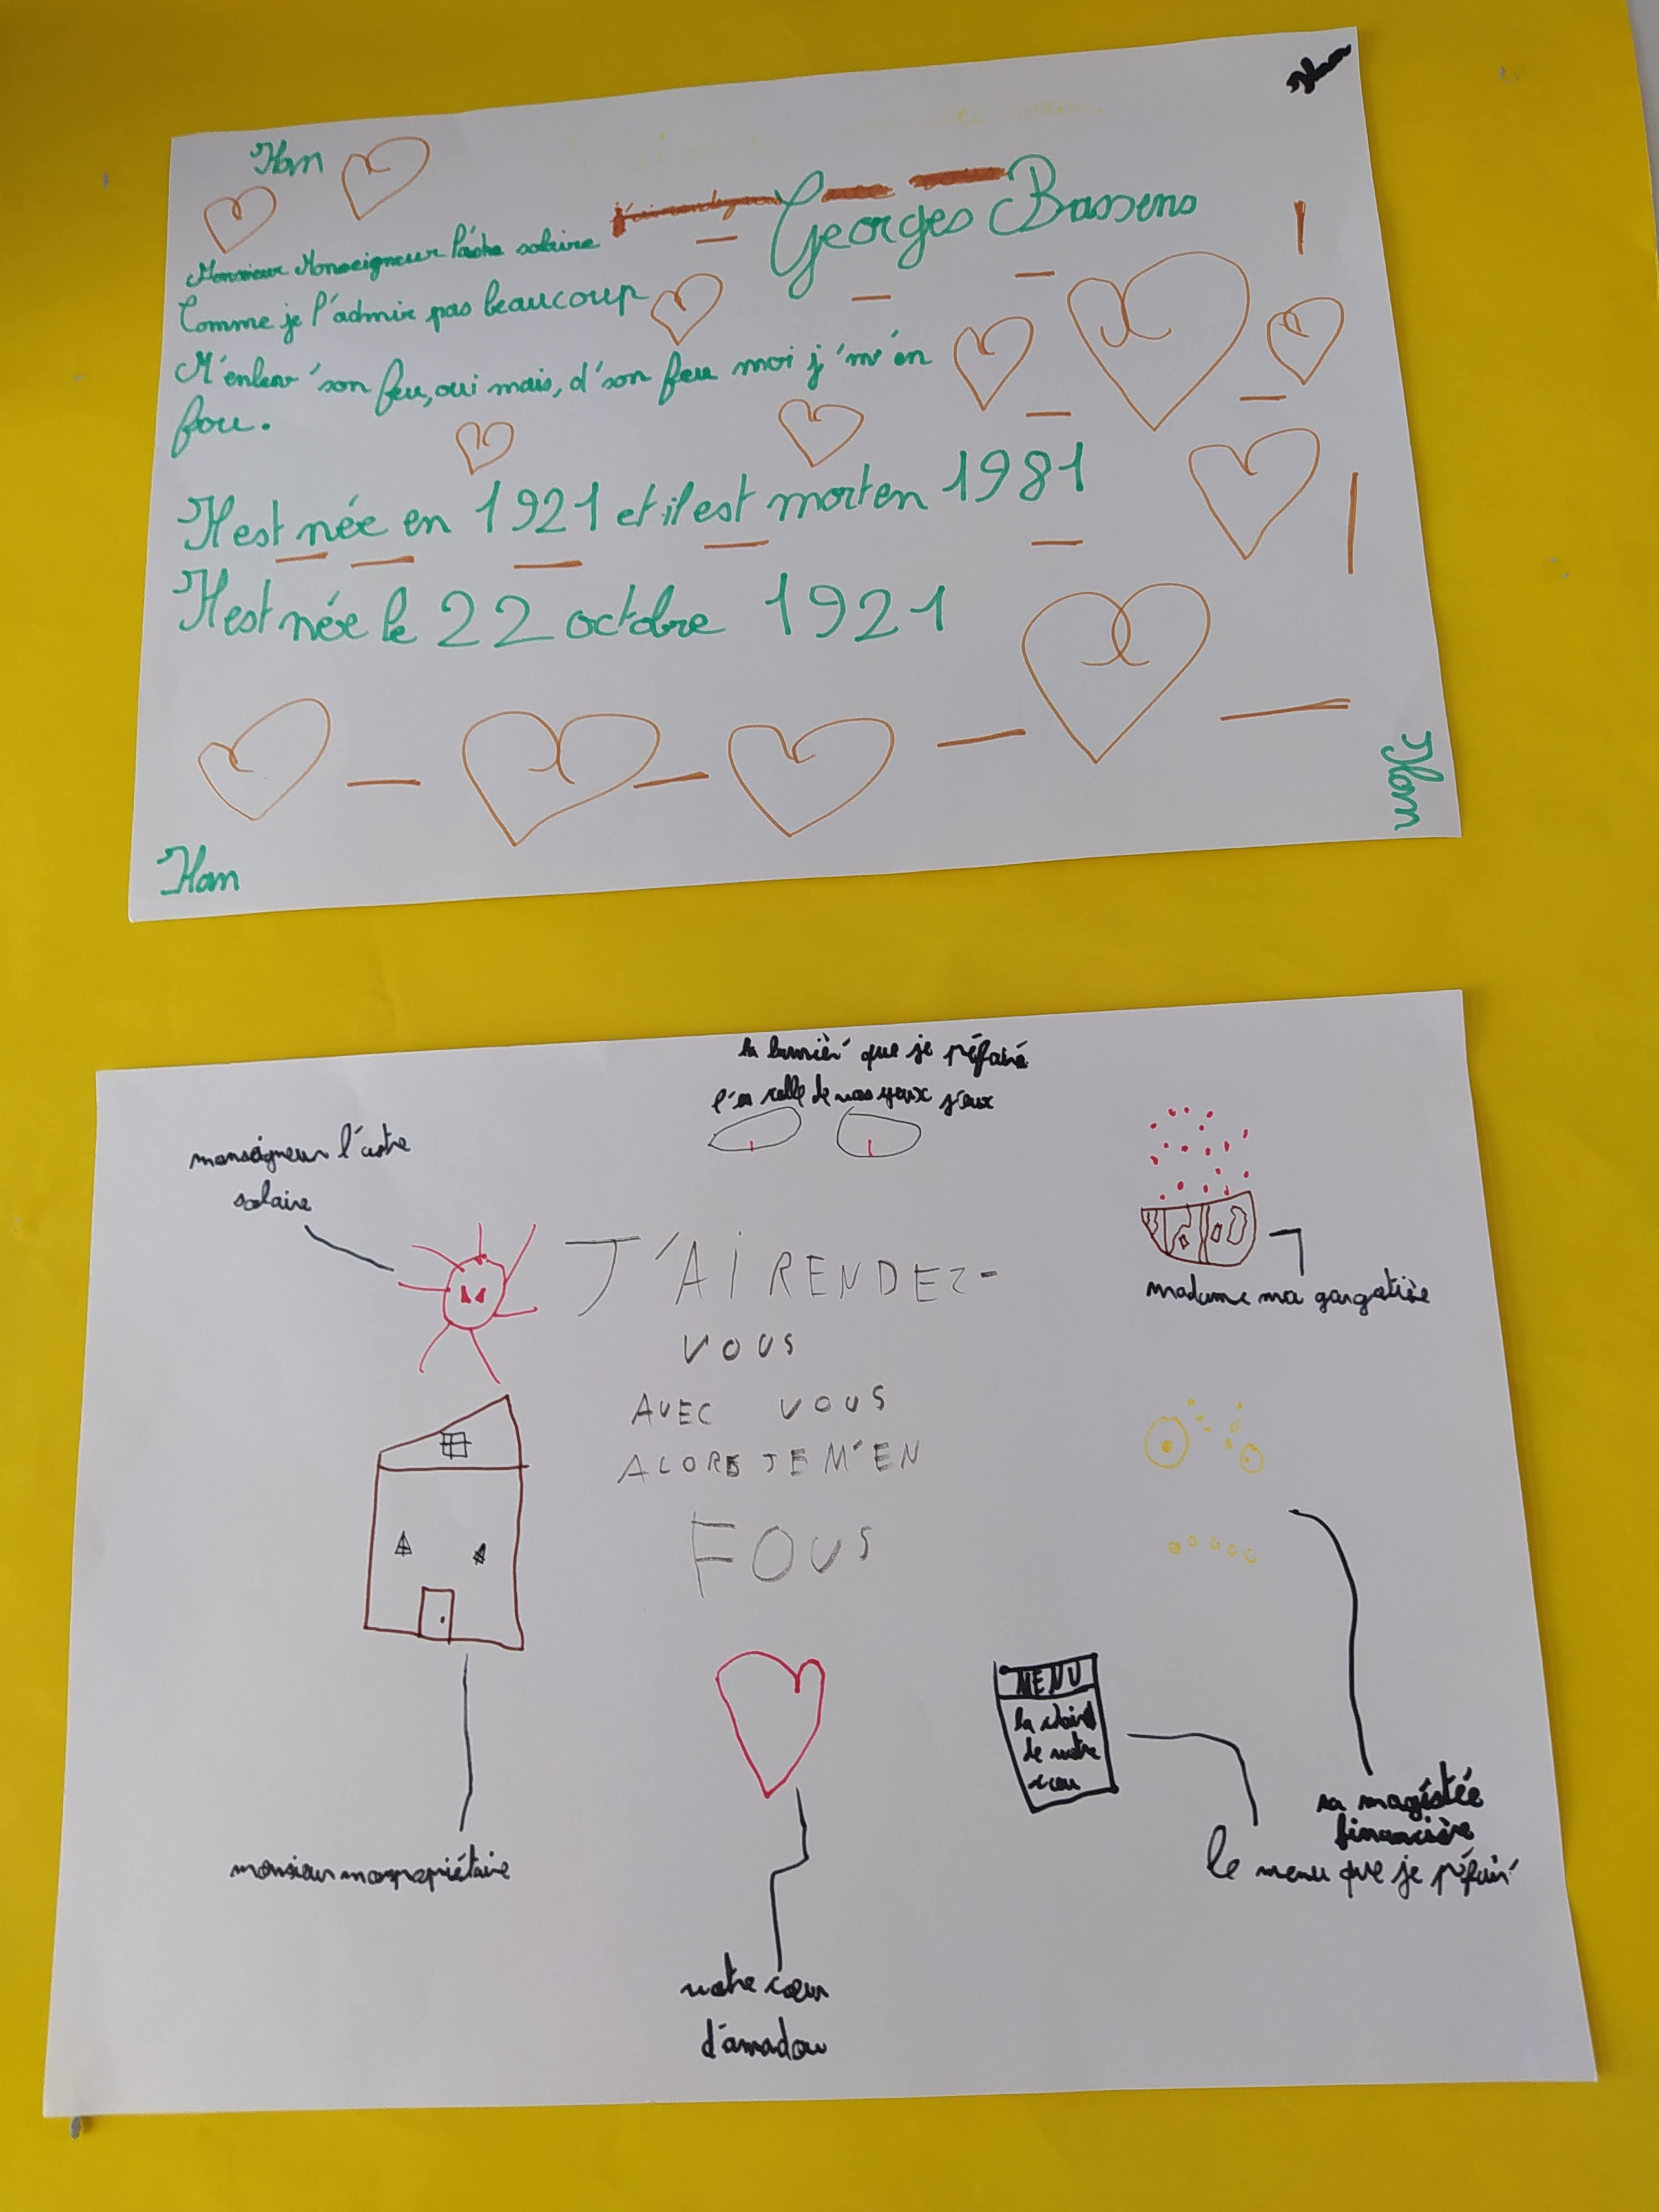 Ilan
Georges Bassens
Monsieur Monseigneur l'astre solaire
Comme je l'admir pas beaucoup
M'enlev' son feu, oui mais, d'son feu moi j'm'en
fou.
Il est née en 1921 et il est mort en 1981
Il est née le 22 octobre 1921
Ilan
Ilan
la lumièr' que je préfairé
l'es celle de vos yeux j'eux
monseigneur l'astre
solaire
J'AI RENDEZ-
VOUS
AVEC VOUS
ALORS JE M'EN
FOUS
madame ma gargotière
MENU
la chair
de votre
cou
sa magistée
financière
le menu que je préfair'
monsieur mon propriétaire
votre cœur
d'amadou